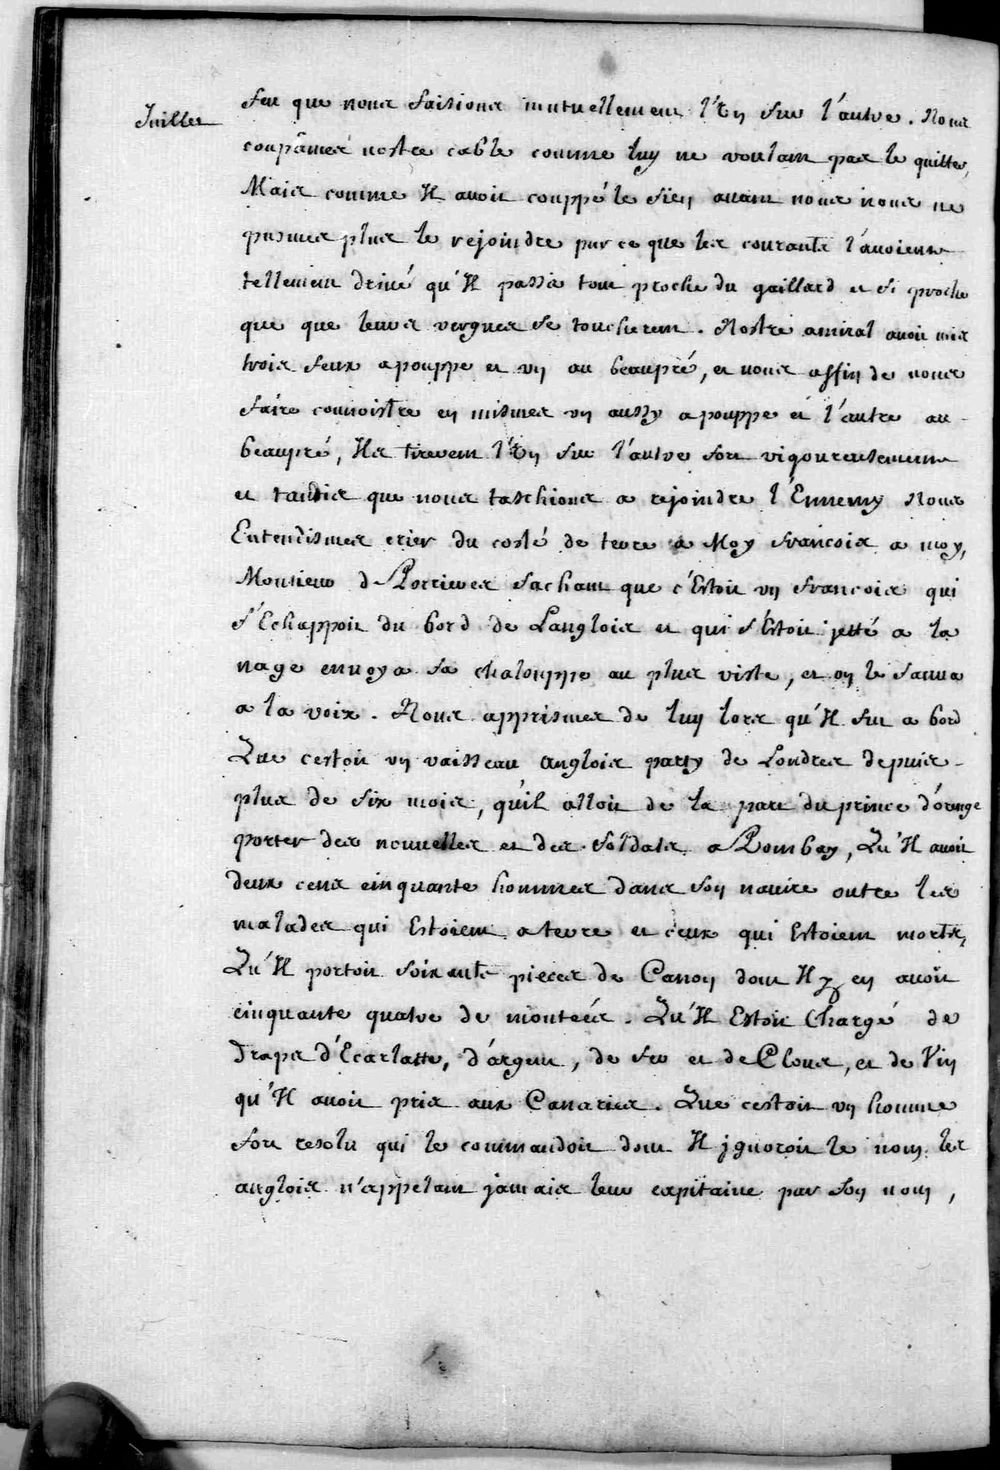 Juillet
feu que nous faisions mutuellement l'Vn sur l'autre. Nous
coupâmes nostre cable comme luy ne voulant pas le quitter,
Mais comme Il auoit couppé le sien auant nous nous ne
pusmes plus le rejoindre parce que les courants l'auoient
tellement driué qu'Il passa tout proche du gaillard et si proche
que que leurs vergues se toucherent. Nostre amiral auoit mis
trois feux a pouppe et vn au beaupré, et nous affin de nous
faire connoistre en mismes vn aussy a pouppe et l'autre au
beaupré, Ils tirerent l'Vn sur l'autre fort vigoureusement
et tandis que nous taschions a rejoindre l'Ennemy Nous
Entendismes crier du costé de terre a Moy francois a moy,
Monsieur d Porrieres sachant que c'Estoit vn francois qui
s'Echappoit du bord de Langlois et qui s'Estoit jetté a la
nage enuoya sa chalouppe au plus viste, et on le sauua
a la voix. Nous apprismes de luy lors qu'Il fut a bord
Que cestoit vn vaisseau anglois party de Londres depuis
plus de six mois, qu'il alloit de la part du prince d'orange
porter des nouuelles et des soldats a Bombay, Qu'Il auoit
deux cens cinquante hommes dans son nauire outre les
malades qui Estoient a terre et ceux qui Estoient morts,
Qu'Il portoit soixante pieces de Canon dont Il y en auoit
cinquante quatre de montées. Qu'Il Estoit Chargé de
Draps d'Ecarlatte, d'argent, de fer et de Clous, et de Vin
qu'Il auoit pris aux Canaries. Que cestoit vn homme
fort resolu qui le commandoit dont Il jgnoroit le nom les
anglois n'appelant jamais leur capitaine par son nom,